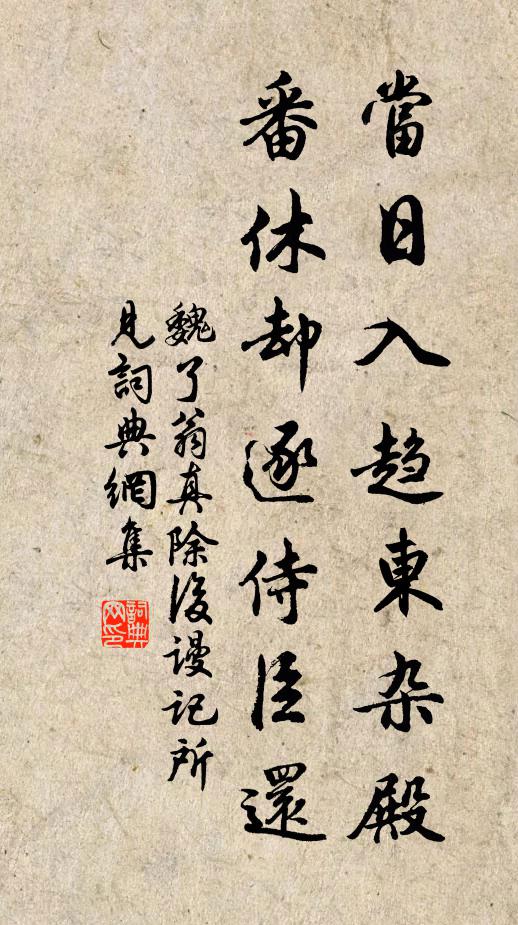 當日入趋東杂殿
番休却逐侍臣還
魏了翁真除後谩记所
見詞典網集
詞典网印